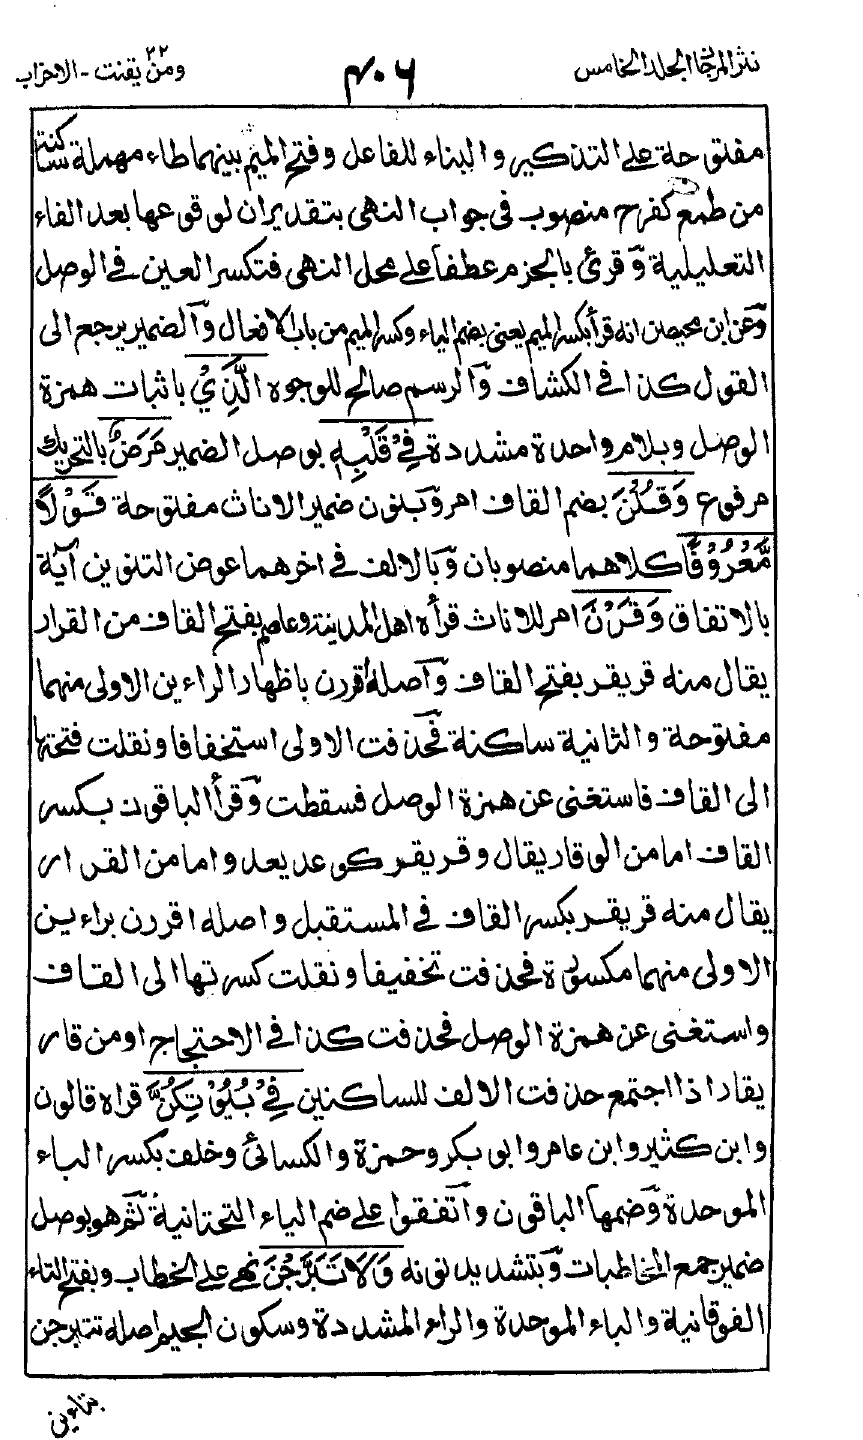 نثر المرجان الجلد الخامس
٤٠٦
ومن يقنت ٢٢ - الاحزاب
مفتوحة على التذكير والبناء للفاعل وفتح الميم بينهما طاء مهملة ساكنة
من طمع كفرح منصوب فى جواب النهى بتقدير ان لوقوعها بعد الفاء
التعليلية وقرئ بالجزم عطفا على محل النهى فتكسر العين فى الوصل
وعن ابن محيصن انه قرأ بكسر الميم يعنى بضم الياء وكسر الميم من باب الافعال والضمير يرجع الى
القول كذا فى الكشاف والرسم صالح للوجوه الَّذِيْ باثبات همزة
الوصل وبلام واحدة مشددة فِيْ قَلْبِهٖ بوصل الضمير مَرَضٌ بالتحريك
مرفوع وَقُلْنَ بضم القاف امر وبنون ضمير الاناث مفتوحة قَوْلًا
مَّعْرُوْفًا كلاهما منصوبان وبالالف فى اخرهما عوض التنوين آية
بالاتفاق وَقَرْنَ امر للاناث قرأه اهل المدينة وعاصم بفتح القاف من القرار
يقال منه قر يقر بفتح القاف وآصله أقررن باظهار الراءين الاولى منهما
مفتوحة والثانية ساكنة فحذفت الاولى استخفافا ونقلت فتحتها
الى القاف فاستغنى عن همزة الوصل فسقطت وقرأ الباقون بكسر
القاف اما من الوقار يقال وقر يقر كوعد يعد واما من القرار
يقال منه قر يقر بكسر القاف فى المستقبل واصله اقررن براءين
الاولى منهما مكسورة فحذفت تخفيفا ونقلت كسرتها الى القاف
واستغنى عن همزة الوصل فحذفت كذا فى الاحتجاج او من قار
يقار اذا اجتمع حذفت الالف للساكنين فِيْ بُيُوْتِكُنَّ قراه قالون
وابن كثير وابن عامر وابو بكر وحمزة والكسائى وخلف بكسر الباء
الموحدة وضمها الباقون واتفقوا على ضم الياء التحتانية ثم هو بوصل
ضمير جمع المخاطبات وبتشديد نونه وَلَا تَبَرَّجْنَ نهى على الخطاب وبفتح التاء
الفوقانية والباء الموحدة والراء المشددة وسكون الجيم اصله تتبرجن
بتاءين